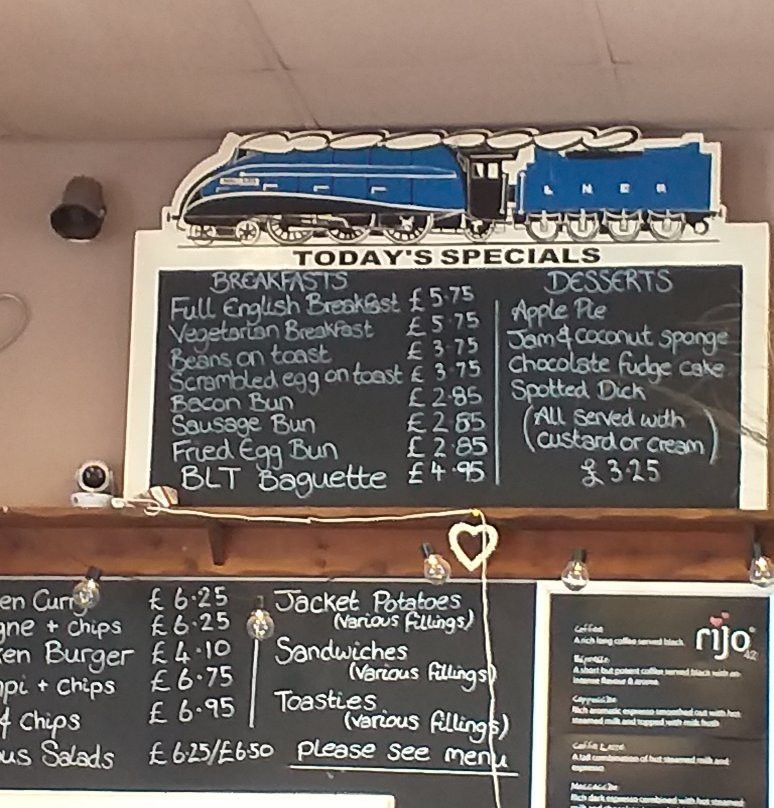 L N E R
TODAY'S SPECIALS
BREAKFASTS
Full English Breakfast £5.75
Vegetarian Breakfast £5.75
Beans on toast £3.75
Scrambled egg on toast £3.75
Bacon Bun £2.85
Sausage Bun £2.85
Fried Egg Bun £2.85
BLT Baguette £4.95
DESSERTS
Apple Pie
Jam & coconut sponge
Chocolate fudge cake
Spotted Dick
(All served with
custard or cream)
£3.25
en Curry £6.25
gne + chips £6.25
ken Burger £4.10
pi + chips £6.75
chips £6.95
us Salads £6.25/£6.50
Jacket Potatoes
(Various fillings)
Sandwiches
(Various fillings)
Toasties
(various fillings)
please see menu
rijo
42
Coffee
A rich long coffee served black.
Espresso
A short but potent coffee served black with an
intense flavour & aroma.
Cappuccino
Rich aromatic espresso smoothed out with hot
steamed milk and topped with milk froth
Caffè Latte
A tall combination of hot steamed milk and
espresso
Rich dark espresso combined with hot steamed